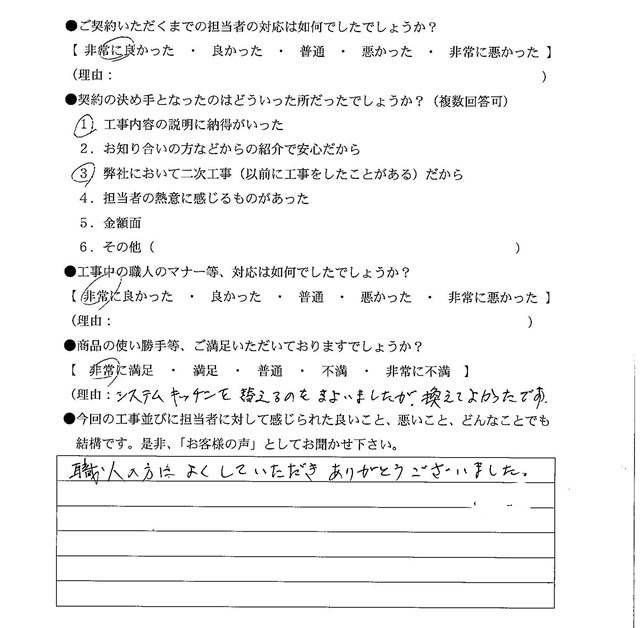 ●ご契約いただくまでの担当者の対応は如何でしたでしょうか？
【 非常に良かった ・ 良かった ・ 普通 ・ 悪かった ・ 非常に悪かった 】
（理由： ）
●契約の決め手となったのはどういった所だったでしょうか？（複数回答可）
1．工事内容の説明に納得がいった
2．お知り合いの方などからの紹介で安心だから
3．弊社において二次工事（以前に工事をしたことがある）だから
4．担当者の熱意に感じるものがあった
5．金額面
6．その他（ ）
●工事中の職人のマナー等、対応は如何でしたでしょうか？
【 非常に良かった ・ 良かった ・ 普通 ・ 悪かった ・ 非常に悪かった 】
（理由： ）
●商品の使い勝手等、ご満足いただいておりますでしょうか？
【 非常に満足 ・ 満足 ・ 普通 ・ 不満 ・ 非常に不満 】
（理由：システムキッチンを替えるのをまよいましたが、換えてよかったです。
●今回の工事並びに担当者に対して感じられた良いこと、悪いこと、どんなことでも
結構です。是非、「お客様の声」としてお聞かせ下さい。
職人の方によくしていただきありがとうございました。